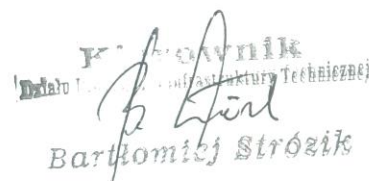 Kierownik
Działu Infrastruktury Technicznej
Bartłomiej Strózik